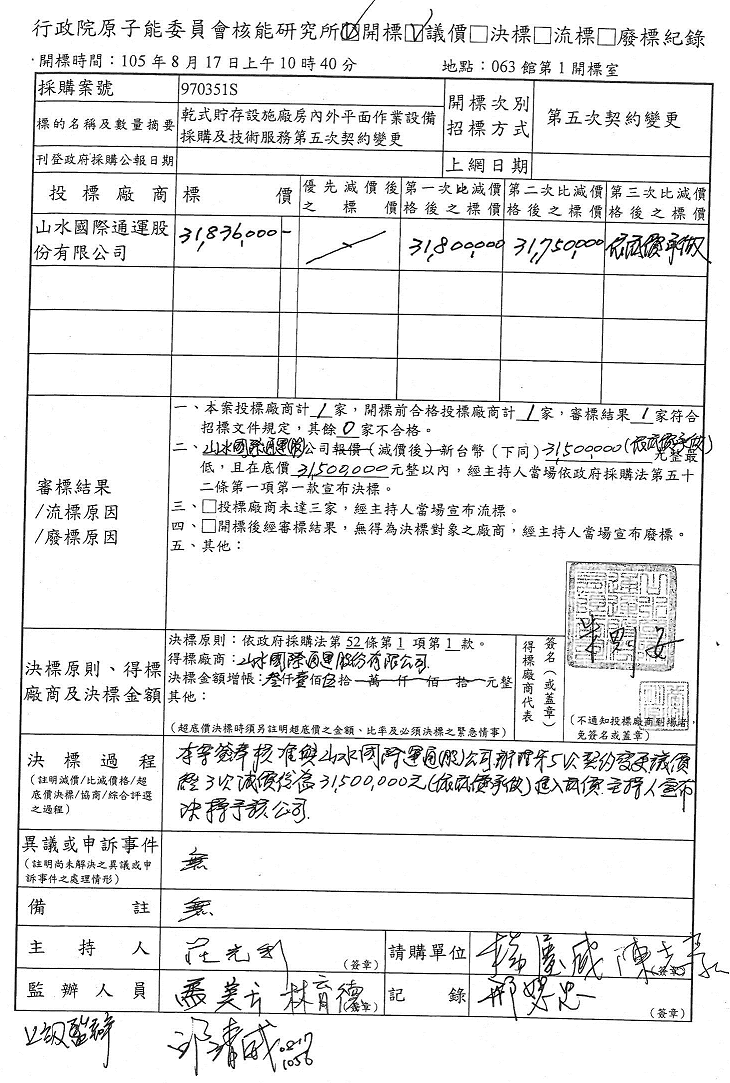 行政院原子能委員會核能研究所☑開標☑議價□決標□流標□廢標紀錄
開標時間：105 年 8 月 17 日上午 10 時 40 分 地點：063 館第 1 開標室
採購案號 970351S 開標次別 招標方式 第五次契約變更
標的名稱及數量摘要 乾式貯存設施廠房內外平面作業設備
採購及技術服務第五次契約變更
刊登政府採購公報日期 上網日期
投標廠商 標價 優先減價後之標價 第一次比減價格後之標價 第二次比減價格後之標價 第三次比減價格後之標價
山水國際通運股份有限公司 31,836,000- 31,800,000 31,750,000 依底價承做
審標結果
/流標原因
/廢標原因
一、本案投標廠商計 1 家，開標前合格投標廠商計 1 家，審標結果 1 家符合
招標文件規定，其餘 0 家不合格。
二、山水國際通運(股)公司報價（減價後）新台幣（下同）31,500,000(依底價承做)元整最
低，且在底價 31,500,000 元整以內，經主持人當場依政府採購法第五十
二條第一項第一款宣布決標。
三、□投標廠商未達三家，經主持人當場宣布流標。
四、□開標後經審標結果，無得為決標對象之廠商，經主持人當場宣布廢標。
五、其他：
決標原則、得標
廠商及決標金額
決標原則：依政府採購法第 52 條第 1 項第 1 款。
得標廠商：山水國際通運股份有限公司
決標金額增帳：叁仟壹佰伍拾萬仟佰拾元整
其他：
（超底價決標時須另註明超底價之金額、比率及必須決標之緊急情事）
得標廠商代表
簽名（或蓋章）
（不通知投標廠商到場者，
免簽名或蓋章）
決標過程
（註明減價/比減價格/超
底價決標/協商/綜合評選
之過程）
本案簽奉核准與山水國際運通(股)公司辦理第5次契約變更議價
經3次減價後為31,500,000元(依底價承做)進入底價.主持人宣布
決標予該公司.
異議或申訴事件
（註明尚未解決之異議或申
訴事件之處理情形）
無
備註 無
主持人 （簽章） 請購單位 （簽章）
監辦人員 林育德 （簽章） 記錄 （簽章）
上級監辦 0817
1056